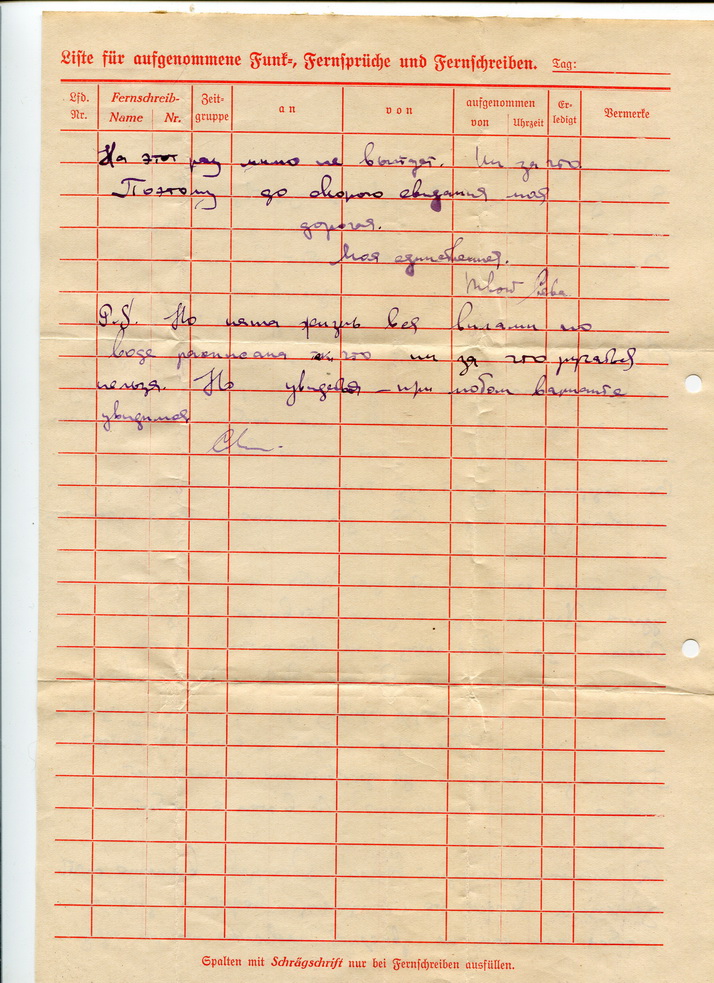 Liste für aufgenommene Funk-, Fernsprüche und Fernschreiben. Tag:
Lfd. Nr.
Fernschreib-
Name Nr.
Zeit-
gruppe
an
von
aufgenommen
von Uhrzeit
Er-
ledigt
Vermerke
На этот раз мимо не выйдет. Ни за что
Поэтому до скорого свидания моя
дорогая.
Моя единственная.
P.S. Но наша жизнь вся вилами по
воде расписана что ни за что ручаться
нельзя. Но увидеться – при любом варианте
увидимся
Spalten mit Schrägschrift nur bei Fernschreiben ausfüllen.